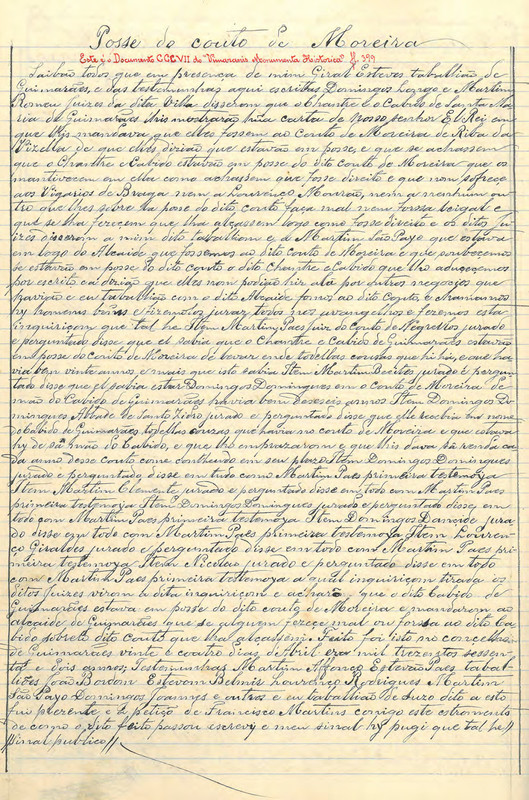 Posse do couto de Moreira
Este é o Documento CCCVII de "Vimaranis Monumenta Historica" f. 399
Saibão todos que em presença de mim Giral Esteves taballião de
Guimarães, e das testemunhas aqui escritas Domingos Longo e Martim
Romeu Juizes da dita Villa disserom que o Chantre e o Cabido de Santa Ma-
ria de Guimarães lhis mostrarão hũa carta de nosso senhor El Rei em
que lhis mandava que elles fossem ao Couto de Moreira de Riba da
Vizella de que elles dizião que estavão em posse, e que se achassem
que o Chantre e Cabido estavão em posse do dito couto de Moreira que os
mantivecem em ella como achassem que fosse direito e que nom sofreçe
aos Vigarios de Braga nem a Lourenço Mourão, nem a nenhum ou-
tro que lhes sobre lha posse do dito couto faça mal nem forssa
que se lha fezeçem que lha alçassem logo como fosse direito e os ditos Ju-
izes disserom a mim dito taballiom e a Martim São Payo que estava
em logo do Alcaide que fossemos ao dito Couto de Moreira e que soubecemos
se estavão em posse do dito couto o dito Chantre e Cabido que lho adugeçemos
por escrito cá dizião que elles nom podião hir alá por outros negocios que
havião e eu taballião com o dito Alcaide fomos ao dito Couto, e chamamos
hy homens boñs e fizemolos jurar todos nos avangelhos e fezemos esta
inquiriçom que tal he Item Martim Paes juiz do Couto de Negrellos jurado
e perguntado disse que el sabia que o Chantre e Cabido de Guimarães estavão
em posse do Couto de Moreira de levar ende todallas cousas que hi há, e que ha-
via bem vinte annos, e mais que isto sabia Item Martim Beeites jurado e pergun-
tado disse que el sabia estar Domingos Domingues em o Couto de Moreira de
mão do Cabido de Guimarães havia bem dezeseis annos Item Domingos Do-
mingues Abbade de Santo Tidro jurado e perguntado disse que elle recebia em nome
do Cabido de Guimarães todallas couzas que havia no couto de Moreira e que estava
hy de sa mão do Cabido, e que lho emprazarom e que lhis dava sá renda ca-
da anno desse couto come contheudo em seu plazo Item Domingos Domingues
jurado e perguntado disse em tudo como Martim Paes primeira testemoya
Item Martim Clemente jurado e perguntado disse em todo com Martim Paes
primeira testemoya Item Domingos Domingues jurado e perguntado disse em
todo com Martim Paes primeira testemoya Item Domingos Dançide jura-
do disse em todo com Martim Paes primeira testemoya Item Louren-
ço Giraldes jurado e perguntado disse em todo com Martim Paes pri-
meira testemoya Item Nicolao jurado e perguntado disse em todo
com Martim Paes primeira testemoya a qual inquiriçom tirada os
ditos Juizes virom a dita inquiriçom e acharão que o dito Cabido de
Guimarães estava em posse do dito couto de Moreira e mandarom ao
alcaide de Guimarães que se alguem fezeçe mal ou forssa ao dito Ca-
bido sobre lo dito couto que lha alçassem. Feito foi isto no concelho
de Guimarães vinte e coatro dias de Abril era mil trezentos sessen-
ta e dois annos; Testemunhas Martim Affonço Estevão Pires tabal-
liões João Bordom Estevom Belmis Lourenço Rodrigues Martim
São Payo Domingos Joannes e outros e eu taballião de suzo dito a esto
fui prezente e a petiçõ de Francisco Martins comigo este estromento
de como o dito feito passou escrevy e meu sinal hy pugi que tal he //
// sinal publico //